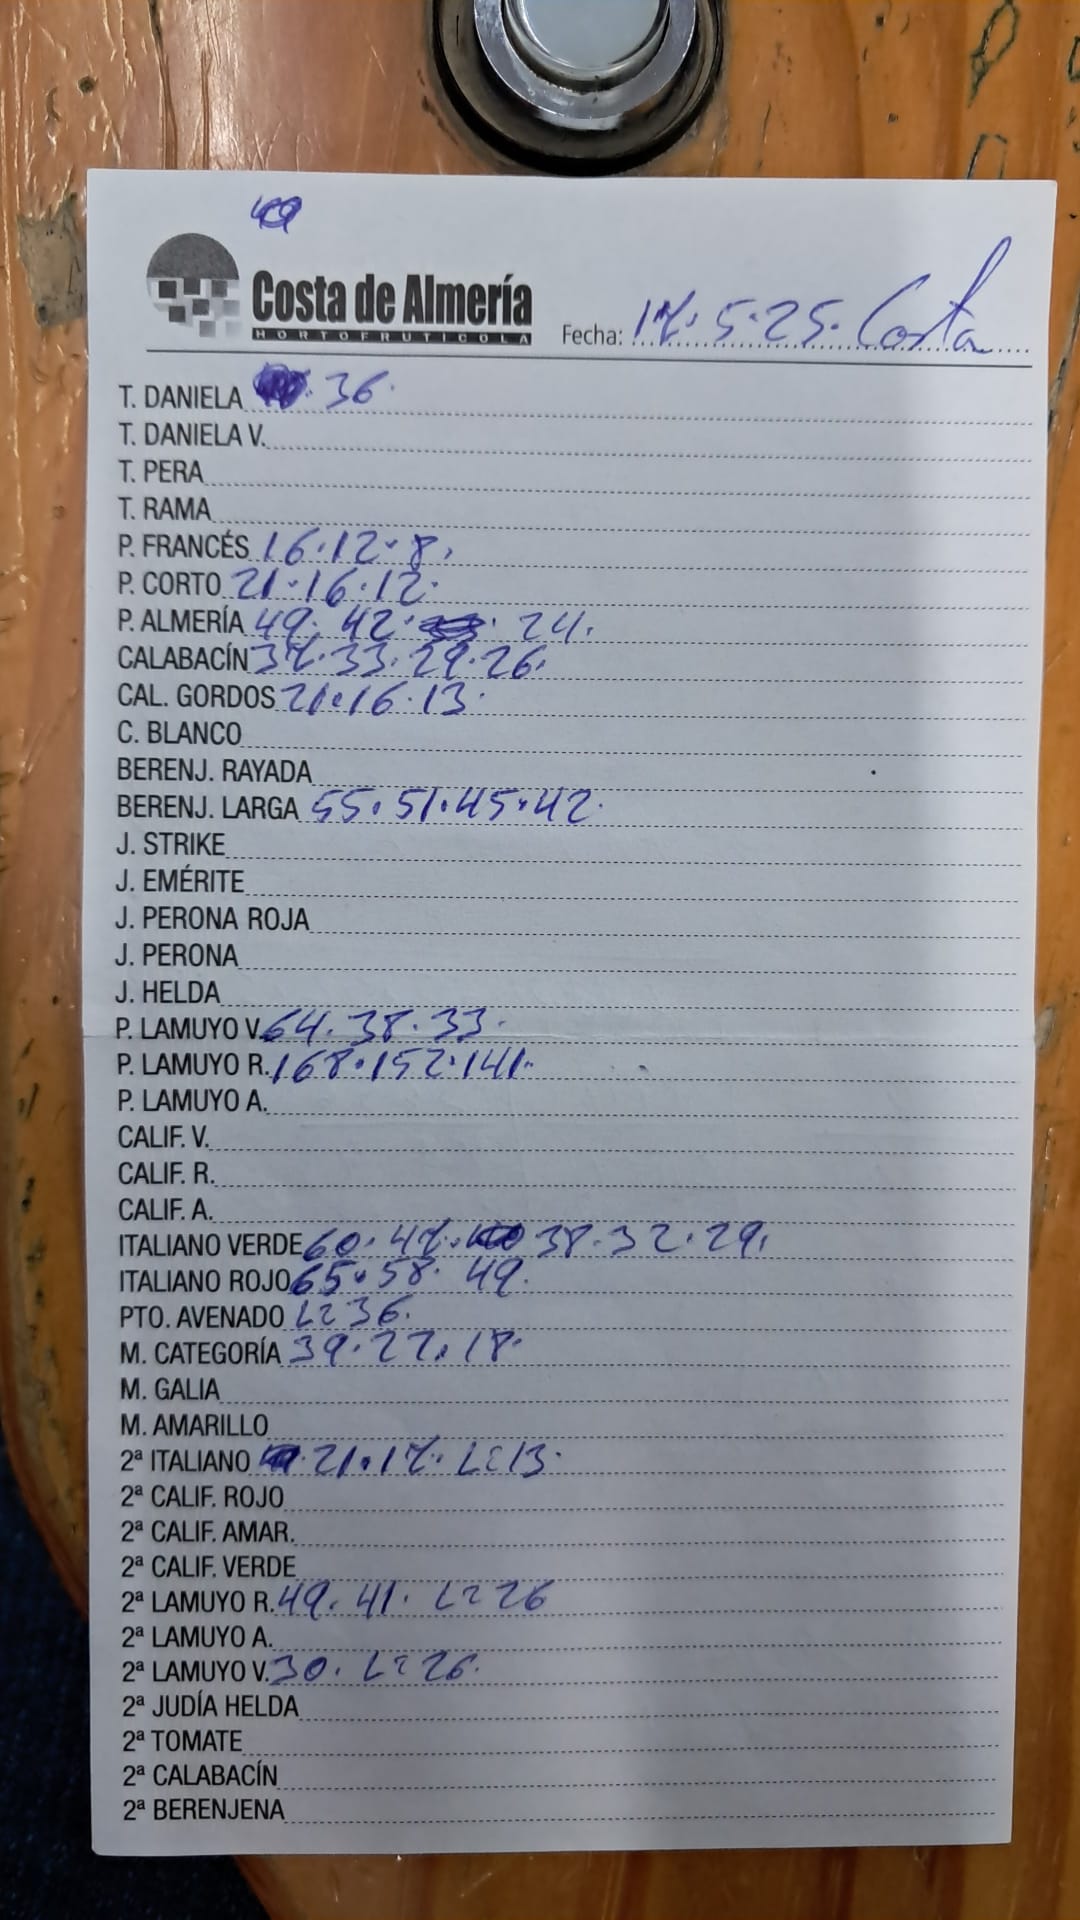 49
Costa de Almería
HORTOFRUTICOLA
Fecha: 17.5.25. Costa
T. DANIELA 36.
T. DANIELA V.
T. PERA
T. RAMA
P. FRANCÉS 16.12.8.
P. CORTO 21.16.12.
P. ALMERÍA 49. 42. 24.
CALABACÍN 37.33.29.26.
CAL. GORDOS 21.16.13.
C. BLANCO
BERENJ. RAYADA
BERENJ. LARGA 55.51.45.42.
J. STRIKE
J. EMÉRITE
J. PERONA ROJA
J. PERONA
J. HELDA
P. LAMUYO V. 64.38.33.
P. LAMUYO R. 168.152.141.
P. LAMUYO A.
CALIF. V.
CALIF. R.
CALIF. A.
ITALIANO VERDE 60.47. 38.32.29.
ITALIANO ROJO 65.58. 49.
PTO. AVENADO L2 36.
M. CATEGORÍA 39.27.18.
M. GALIA
M. AMARILLO
2ª ITALIANO 21.17. L2 13.
2ª CALIF. ROJO
2ª CALIF. AMAR.
2ª CALIF. VERDE
2ª LAMUYO R. 49. 41. L2 26
2ª LAMUYO A.
2ª LAMUYO V. 30. L2 26.
2ª JUDÍA HELDA
2ª TOMATE
2ª CALABACÍN
2ª BERENJENA